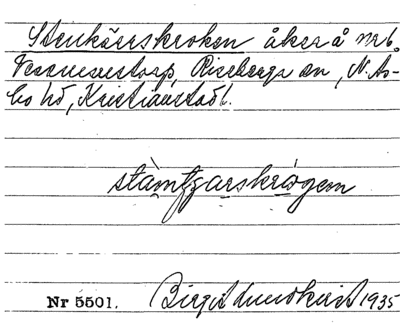 Stenkärrskroken åker å nr 6
Vessmestorp, Riseberga sn, N. Ås-
bo hd, Kristianstads l.
stämtjarskrögem
Nr 5501. Birgit Lundkvist 1935